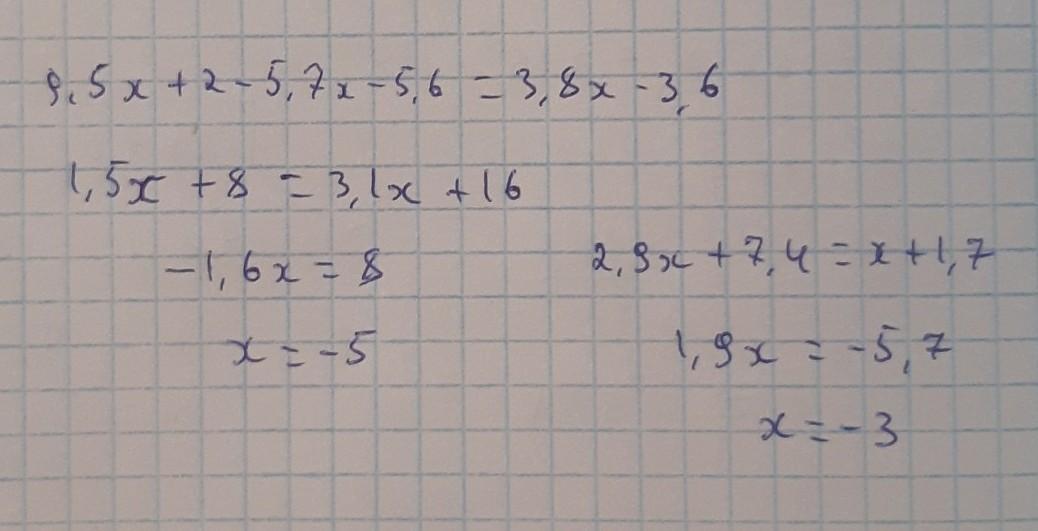 9,5x + 2 - 5,7x - 5,6 = 3,8x - 3,6
1,5x + 8 = 3,1x + 16
-1,6x = 8
x = -5
2,9x + 7,4 = x + 1,7
1,9x = -5,7
x = -3